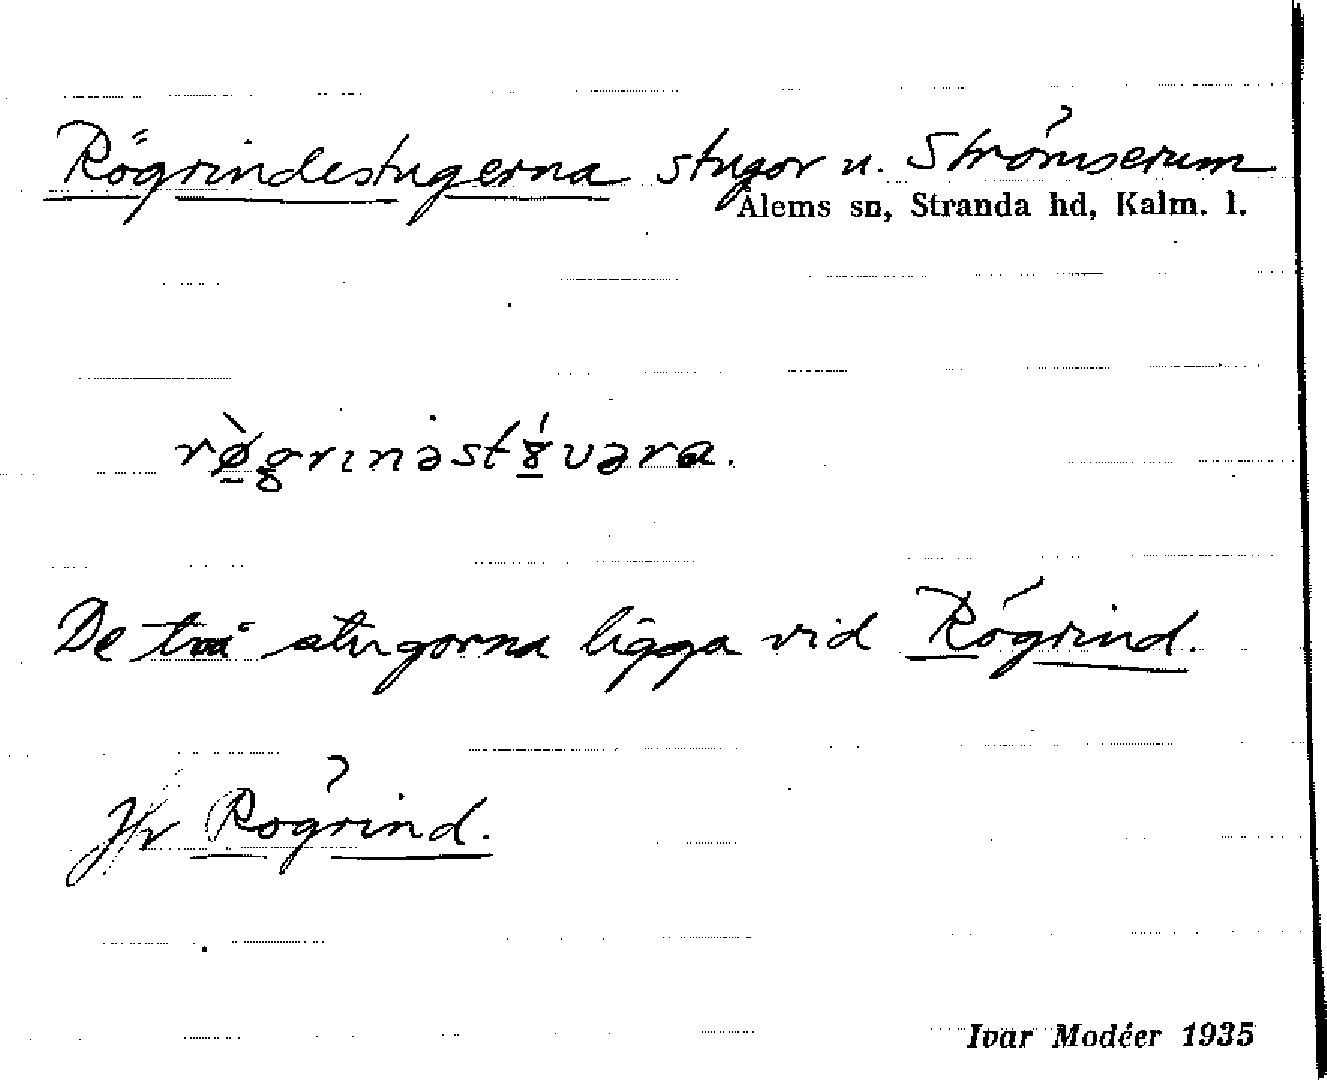 Rögrindestugerna stugor u. Strömserum
Ålems sn, Stranda hd, Kalm. l.
rø̀grɪnəstȣ́vəra.
De två stugorna ligga vid Rögrind.
Jfr Rögrind.
Ivar Modéer 1935